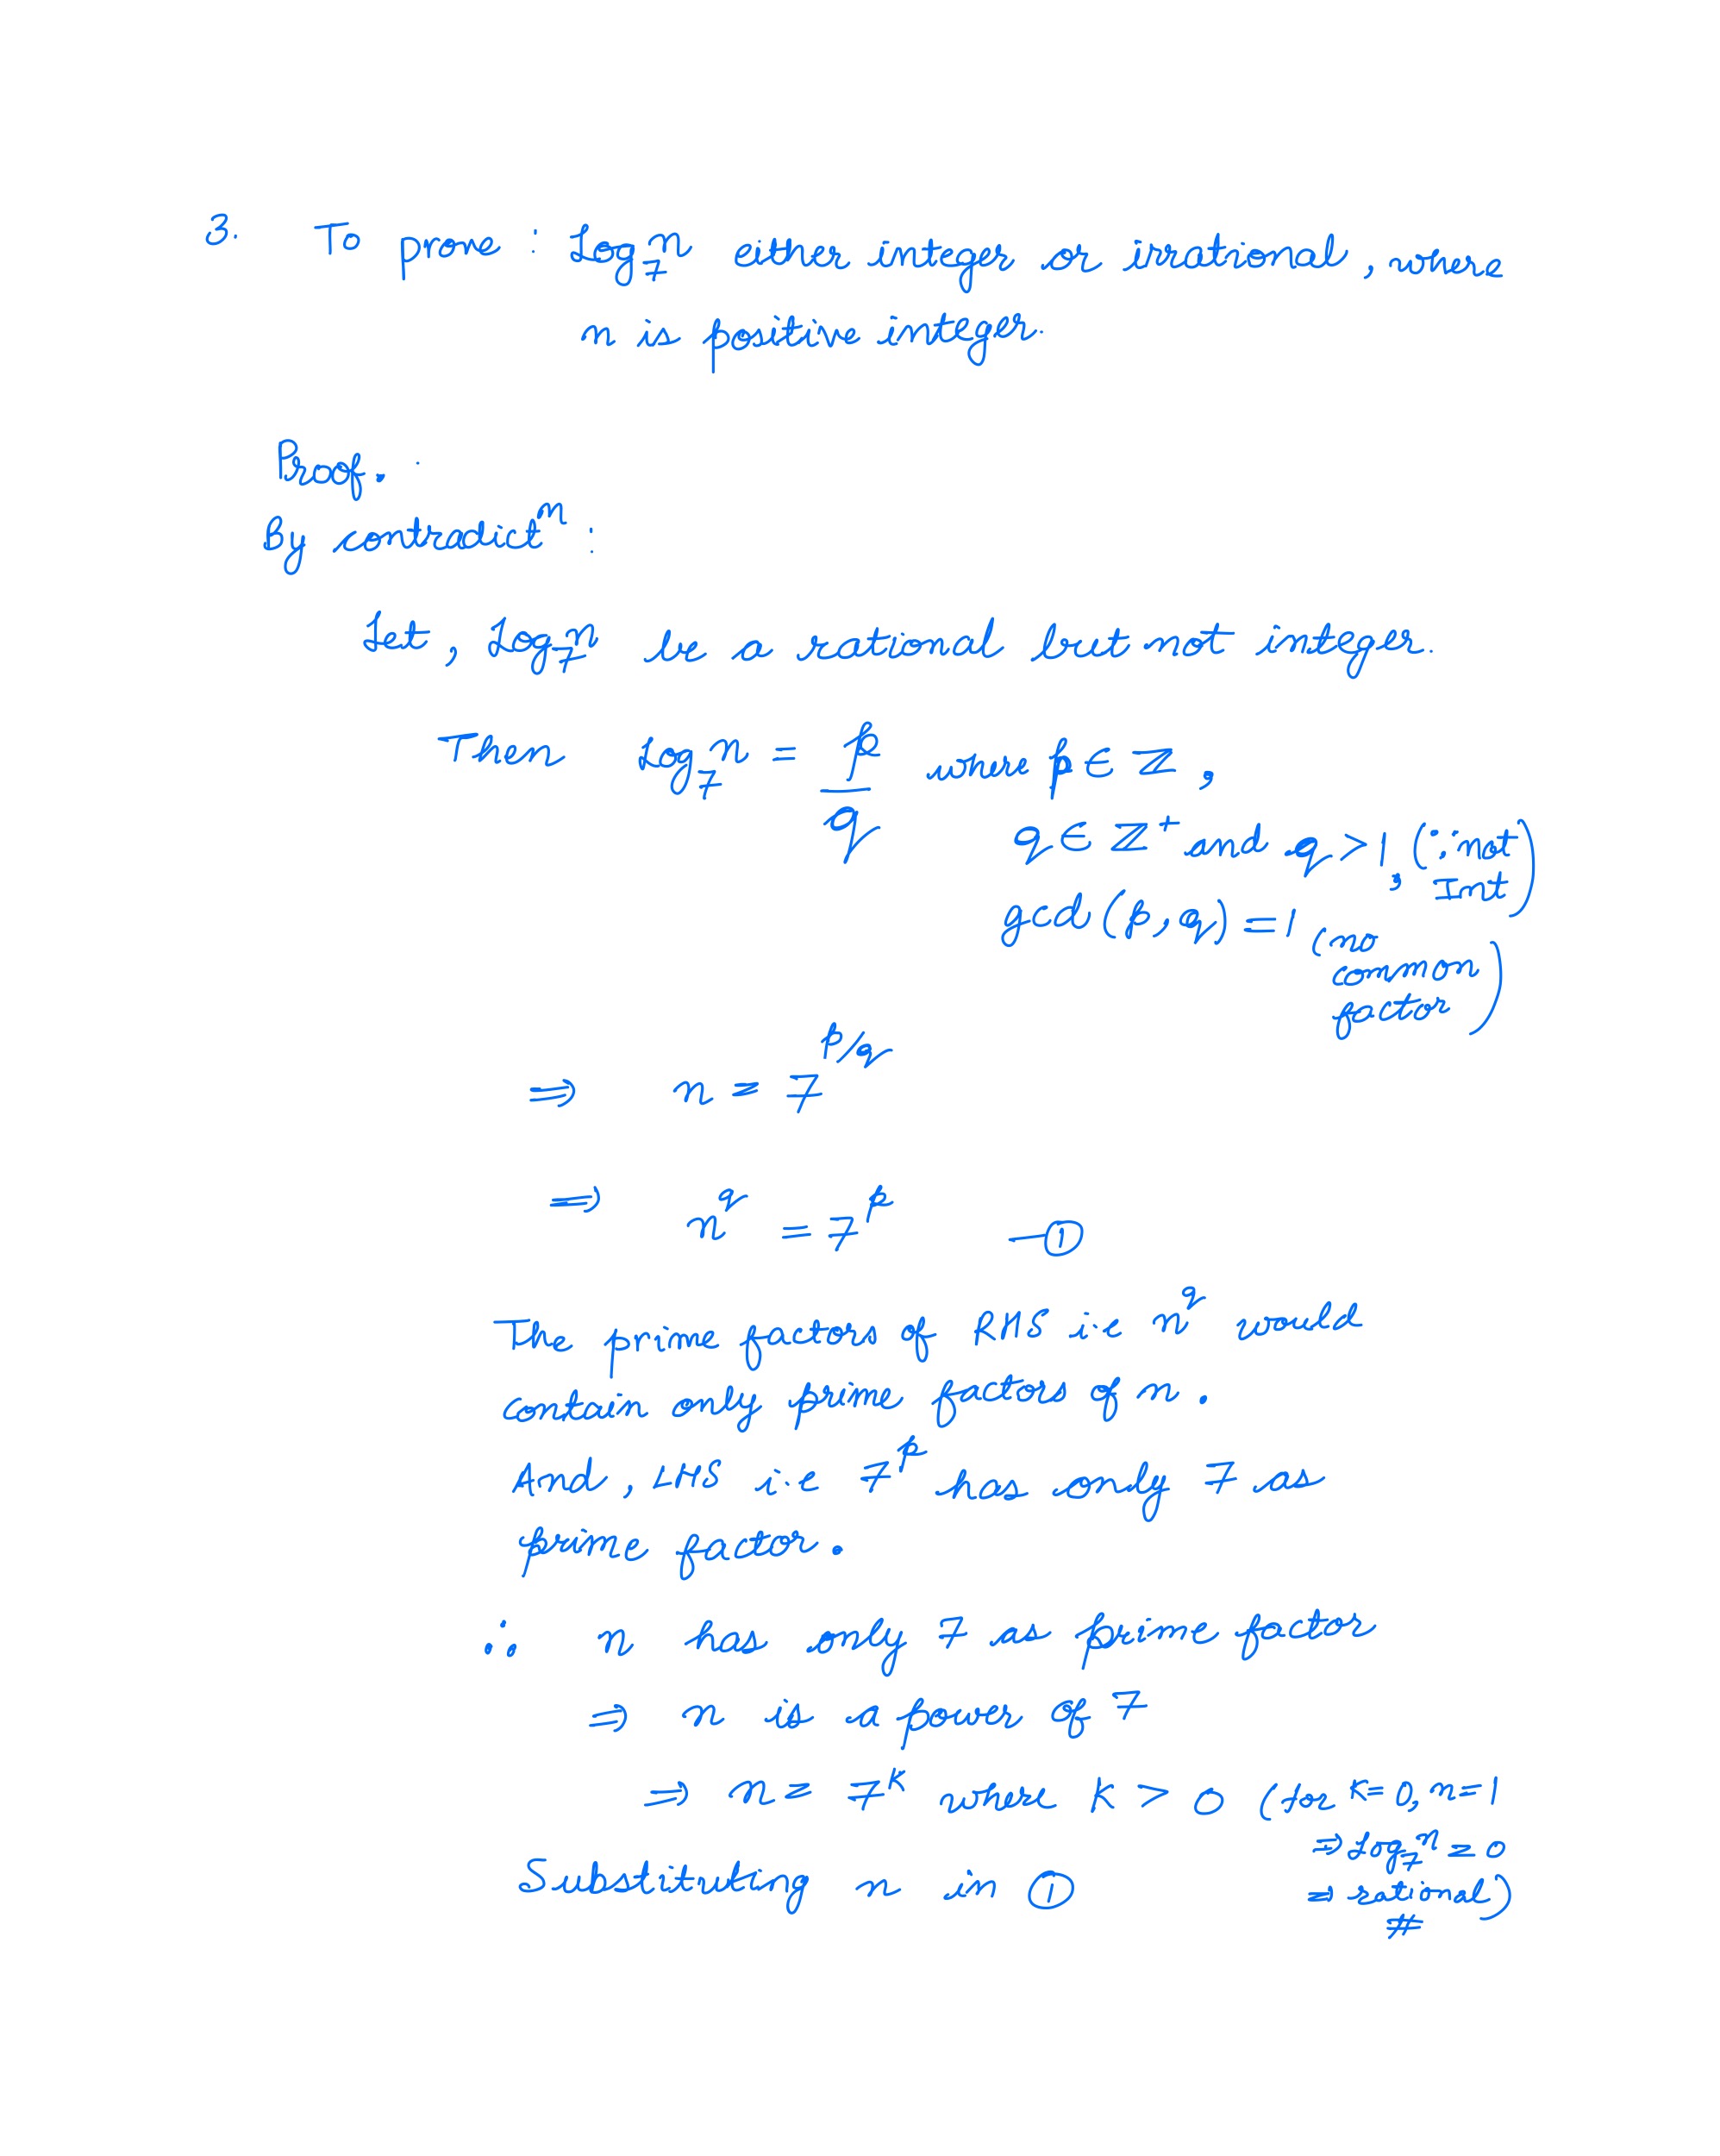 3. To prove : Log₇n either integer or irrational, where
n is positive integer.
Proof.
By contradictⁿ :
Let, Log₇n be a rational but not integer.
Then Log₇n = p/q where p ∈ Z,
q ∈ Z⁺ and q > 1, (∵ not Int)
gcd (p, q) = 1 (no common factor)
⇒ n = 7^(p/q)
⇒ n^q = 7^p —①
The prime factors of RHS i.e n^q would
contain only prime factors of n.
And, LHS i.e 7^p has only 7 as
prime factor.
∴ n has only 7 as prime factor
⇒ n is a power of 7
⇒ n = 7^k where k > 0 (for k=0, n=1
⇒ Log₇n = 0
⇒ rational)
#
Substituting n in ①